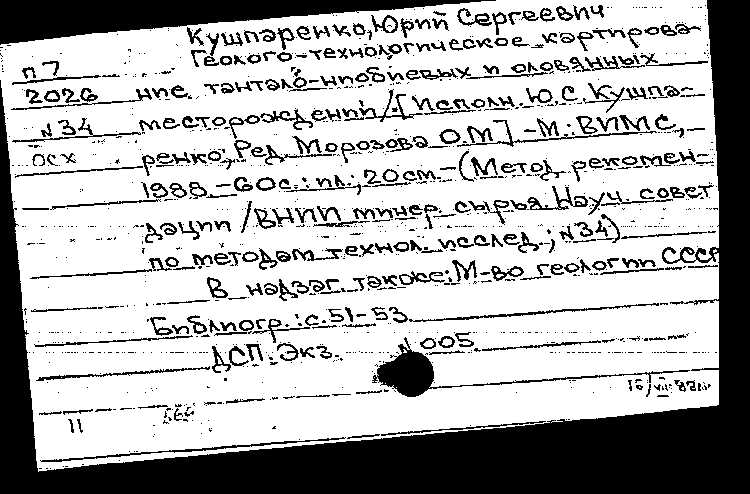 Кушпаренко, Юрий Сергеевич
п7 Геолого-технологическое картирова-
2026 ние тантало-ниобиевых и оловянных
N34 месторождений/[Исполн. Ю.С. Кушпа-
осх ренко; Ред. Морозова О.М] -М.: ВИМС,-
1988.-60с.: ил.; 20см.-(Метод. рекомен-
дации /ВНИИ минер. сырья. Науч. совет
по методам технол. исслед.; N34)
В надзаг. также: М-во геологии СССР
Библиогр.: с.51-53.
ДСП. Экз. N 005
15/VII-88г.
11 566